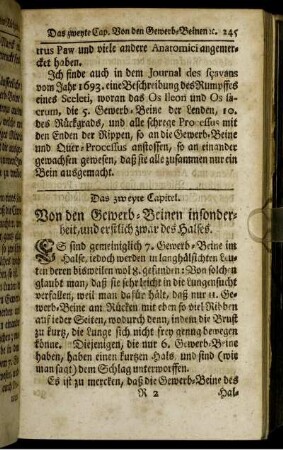 Das zweyte Cap. Von den Gewerb-Beinen ꝛc. 245
trus Paw und viele andere Anatomici angemer-
cket haben.
Ich finde auch in dem Journal des sçavans
vom Jahr 1693. eine Beschreibung des Rumpffes
eines Sceleti, woran das Os Ileon und Os sa-
crum, die 5. Gewerb-Beine der Lenden, 10.
des Rückgrads, und alle schrege Processus mit
den Enden der Rippen, so an die Gewerb-Beine
und Quer-Processus anstossen, so an einander
gewachsen gewesen, daß sie alle zusammen nur ein
Bein ausgemacht.
Das zweyte Capitel.
Von den Gewerb-Beinen insonder-
heit, und erstlich zwar des Halses.
ES sind gemeiniglich 7. Gewerb-Beine im
Halse, iedoch werden in langhälsichten Leu-
ten deren bisweilen wol 8. gefunden: Von solchen
glaubt man, daß sie sehr leicht in die Lungensucht
verfallen, weil man dafür hält, daß nur 11. Ge-
werb-Beine am Rücken mit eben so viel Ribben
auf ieder Seiten, wodurch denn, indem die Brust
zu kurtz, die Lunge sich nicht frey genug bewegen
könne. Diejenigen, die nur 6. Gewerb-Beine
haben, haben einen kurtzen Hals, und sind (wie
man sagt) dem Schlag unterworffen.
Es ist zu mercken, daß die Gewerb-Beine des
R 2 Hal-